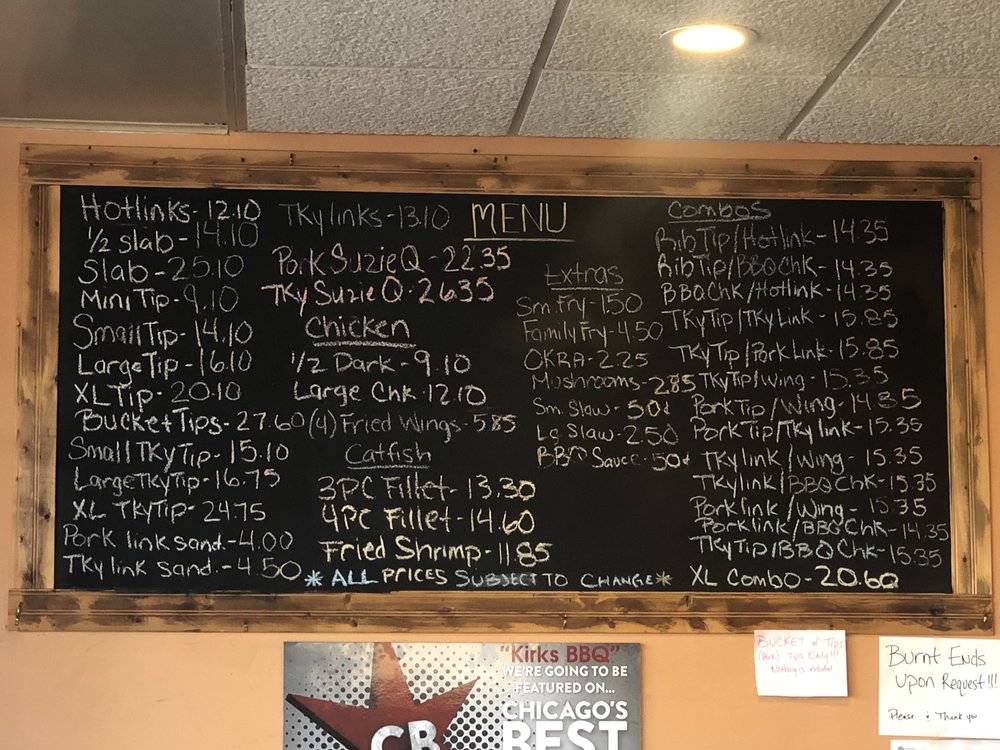 MENU
Hotlinks - 12.10
1/2 slab - 14.10
Slab - 25.10
Mini Tip - 9.10
Small Tip - 14.10
Large Tip - 16.10
XL Tip - 20.10
Bucket Tips - 27.60
Small TKy Tip - 15.10
Large TKy Tip - 16.75
XL TKy Tip - 24.75
Pork link sand. - 4.00
TKy link sand. - 4.50
TKy links - 13.10
Pork Suzie Q - 22.35
TKy Suzie Q - 26.35
Chicken
1/2 Dark - 9.10
Large Chk - 12.10
(4) Fried Wings - 5.85
Catfish
3PC Fillet - 13.30
4PC Fillet - 14.60
Fried Shrimp - 11.85
* ALL PRICES SUBJECT TO CHANGE *
Extras
Sm. Fry - 1.50
Family Fry - 4.50
OKRA - 2.25
Mushrooms - 2.85
Sm. Slaw - 50¢
Lg Slaw - 2.50
BBQ Sauce - 50¢
Combos
Rib Tip / Hotlink - 14.35
Rib Tip / BBQ Chk - 14.35
BBQ Chk / Hotlink - 14.35
TKy Tip / TKy Link - 15.85
TKy Tip / Pork Link - 15.85
TKy Tip / Wing - 15.35
Pork Tip / Wing - 14.85
Pork Tip / TKy link - 15.35
TKy link / Wing - 15.35
TKy link / BBQ Chk - 15.35
Pork link / Wing - 15.35
Pork link / BBQ Chk - 14.35
TKy Tip / BBQ Chk - 15.35
XL Combo - 20.60
"Kirks BBQ"
WE'RE GOING TO BE
FEATURED ON...
CHICAGO'S
BEST
CB
BUCKET of Tips
(Pork) Tips Only!!!
Nothing is included
Burnt Ends
Upon Request!!!
Please & Thank you